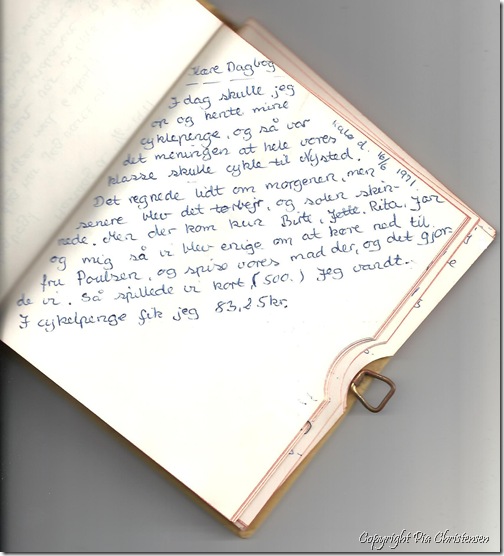 Kære Dagbog
I dag skulle jeg
op og hente mine
cykelpenge, og så var
det meningen at hele vores
klasse skulle cykle til Nysted.
16/6 1971
Det regnede lidt om morgenen, men
senere blev det tørvejr, og solen skin-
nede. Men der kom kun Britt, Jette, Rita, Jan
og mig så vi blev enige om at køre ned til
fru Poulsen, og spise vores mad der, og det gjor-
de vi. Så spillede vi kort, (500.) Jeg vandt.
I cykelpenge fik jeg 83,25kr.
Copyright Pia Christensen